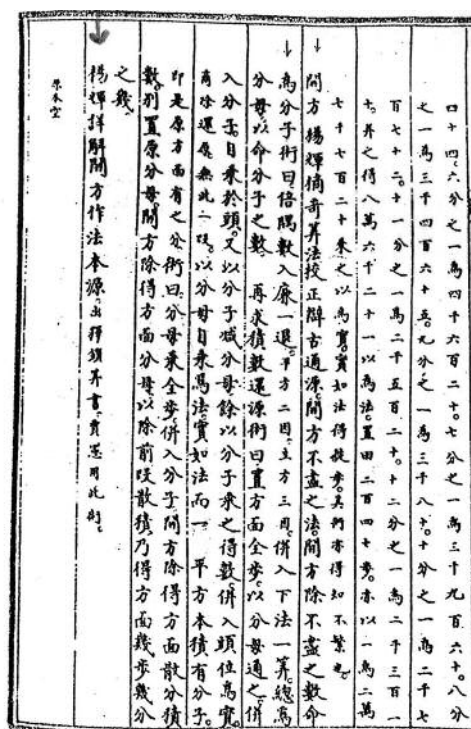 四十四。六分之一為四千六百二十。七分之一為三千九百六十。八分
之一為三千四百六十五。九分之一為三千八十。十分之一為二千七
百七十二。十一分之一為二千五百二十。十二分之一為二千三百一
十。并之得八萬六千二十一以為法。置田二百四十步。亦以一為二萬
七千七百二十乘之以為實。實如法得從步。其術亦得知不繁也。
開方楊輝摘奇算法校正辯古通源。開方不盡之法。開方除不盡之數命
為分子術曰。倍隅數入廉一退。平方二因。立方三因。併入下法一算。總為
分母。以命分子之數 再求積數還源術曰置方面全步。以分母通之。併
入分子。自乘於頭。又以分子減分母。餘以分子乘之得數。併入頭位為實。
商除還原。無此一段。以分母自乘為法。實如法而一 平方本積有分子。
即是原方面有之分。術曰。分母乘全步併入分子。開方除得方面散分積
數。別置原分母。開方除得方面分母。以除前段散積。乃得方面幾步幾分
之幾。
楊輝詳解開方作法本源。出釋鎖算書。賈憲用此術。